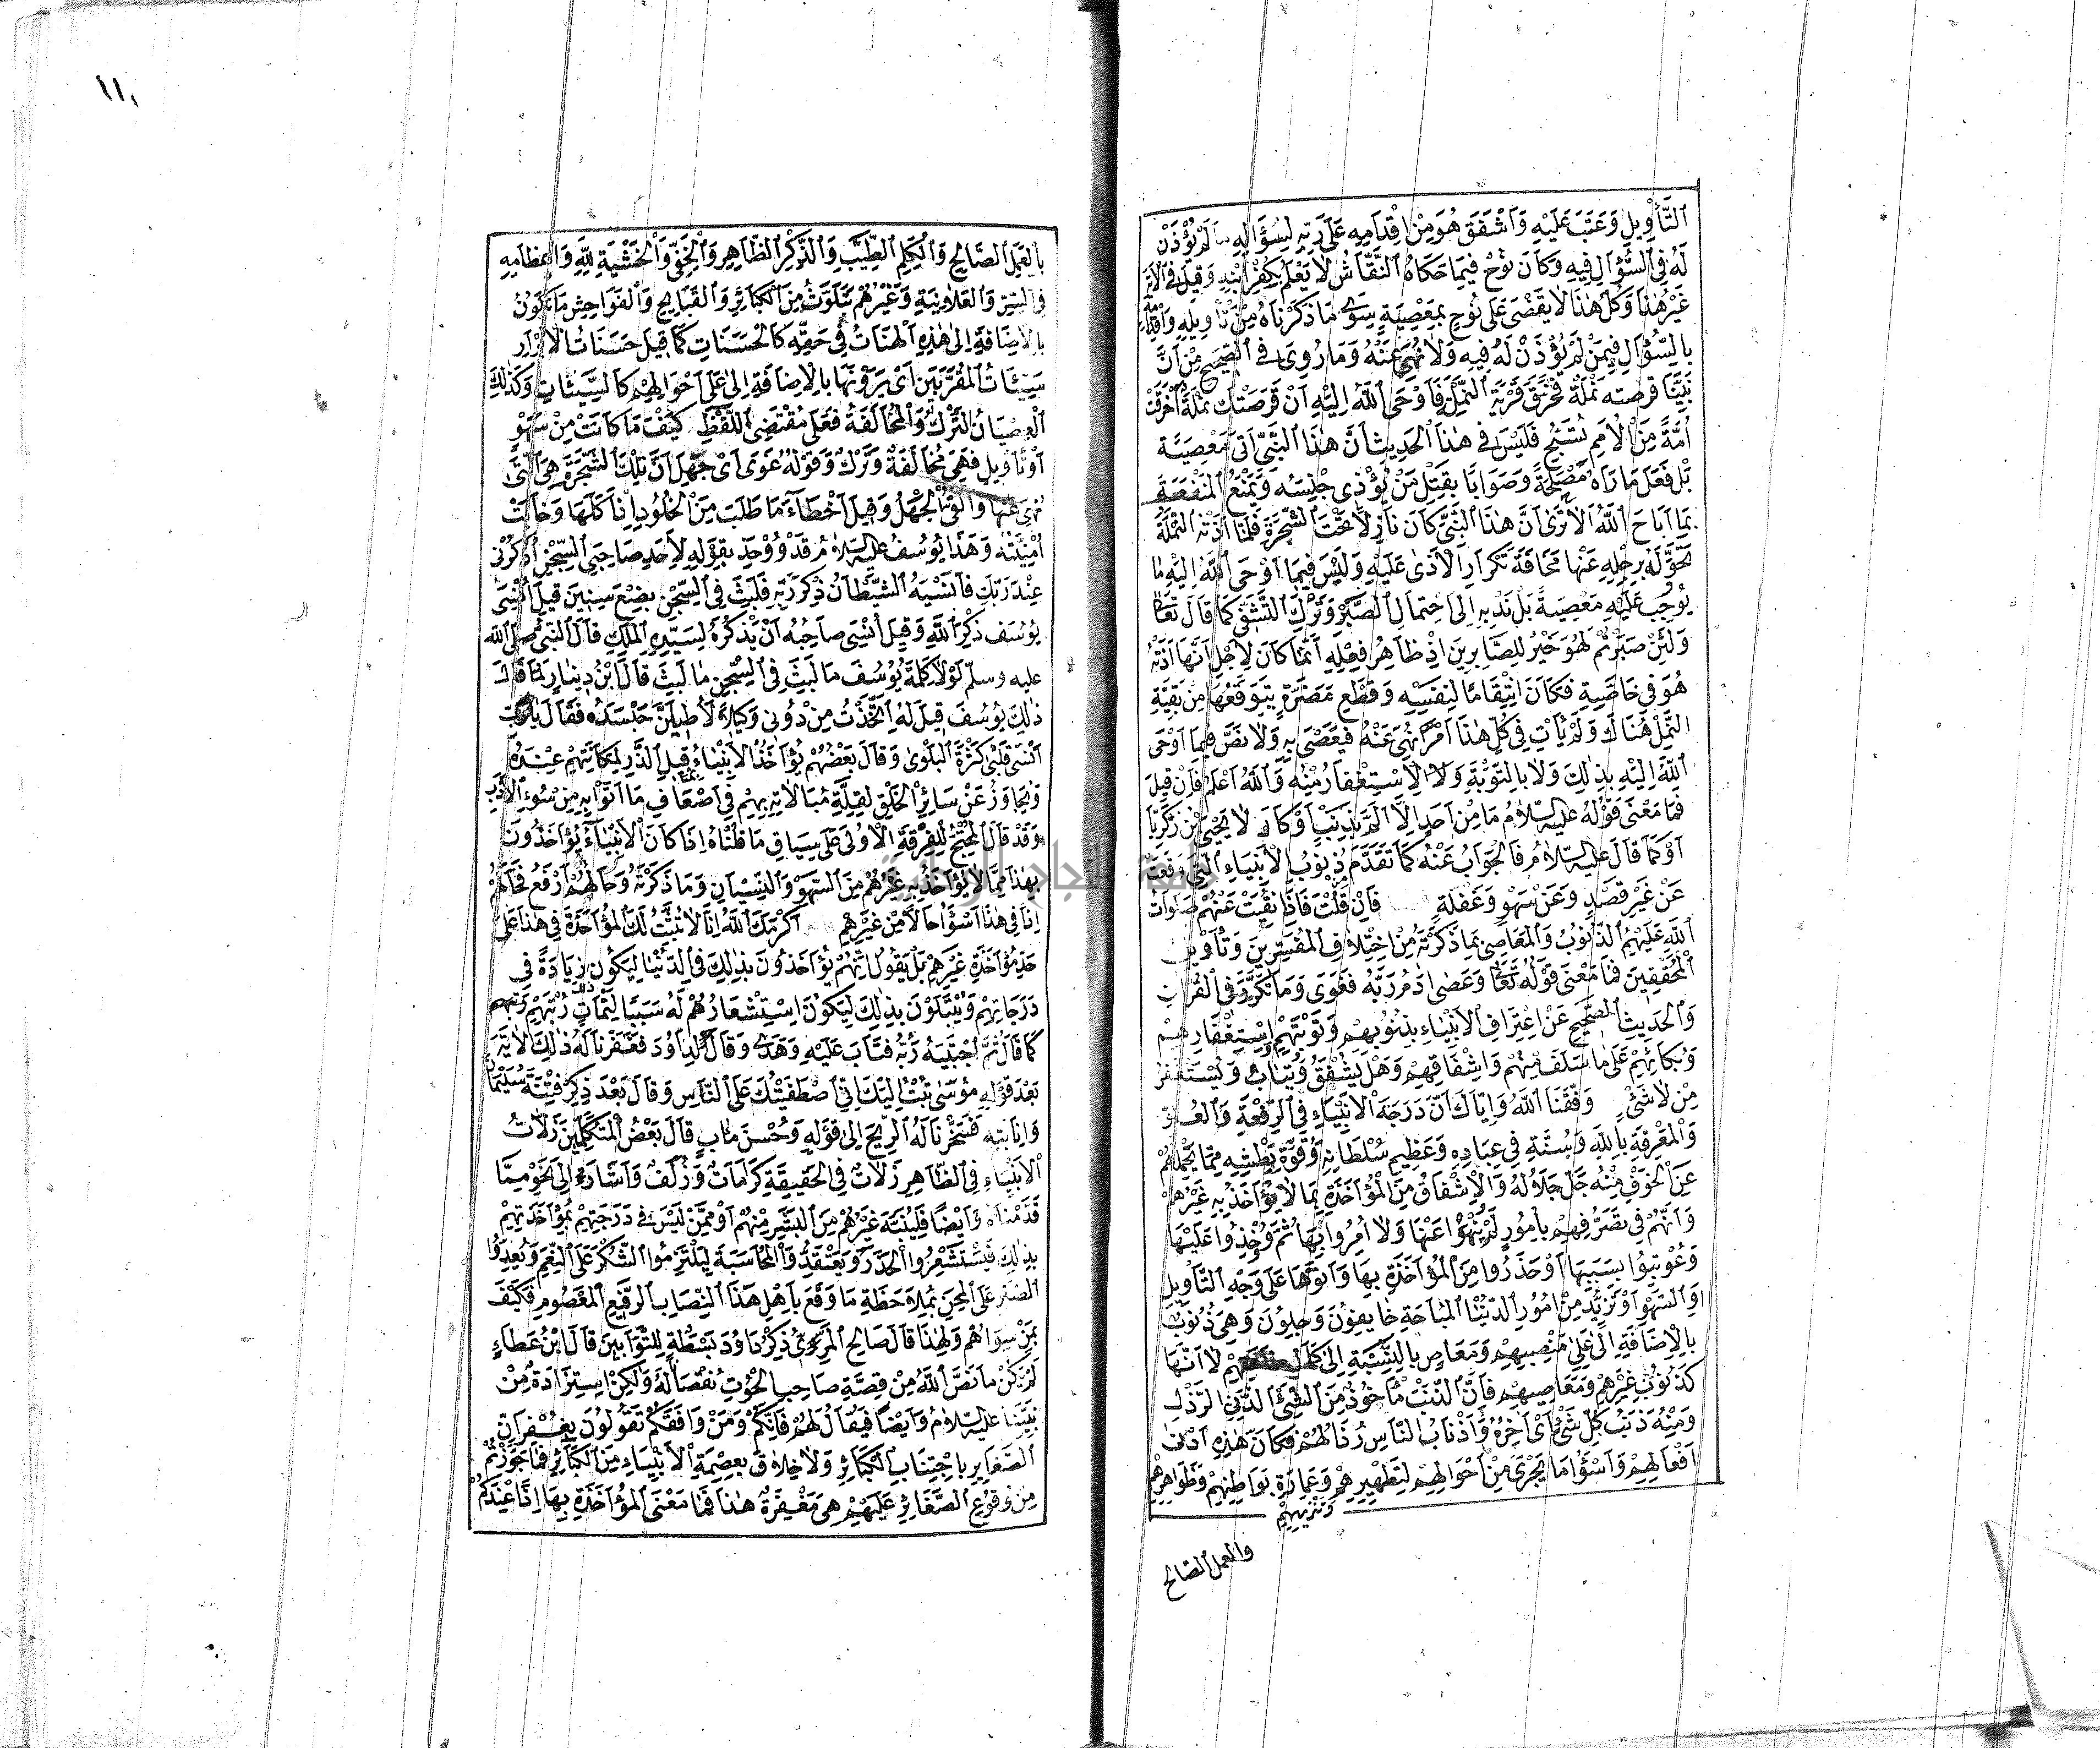 التَّأْوِيلِ وَعَتَبَ عَلَيْهِ وَاَشْفَقَ هُوَ مِنْ اِقْدَامِهِ عَلَى رَبِّهِ لِسُؤَالِهِ مَا لَمْ يُؤْذَنْ
لَهُ فِي السُّؤَالِ فِيهِ وَكَانَ نُوحٌ فِيمَا حَكَاهُ النَّقَّاشُ لَا يَعْلَمُ بِكُفْرِ ابْنِهِ وَقِيلَ فِي الْآيَةِ
غَيْرُ هٰذَا وَكُلُّ هٰذَا لَا يَقْضِي عَلَى نُوحٍ بِمَعْصِيَةٍ سِوَى مَا ذَكَرْنَاهُ مِنْ تَأْوِيلِهِ وَاِقْدَامِهِ
بِالسُّؤَالِ فِيمَنْ لَمْ يُؤْذَنْ لَهُ فِيهِ وَلَا نُهِيَ عَنْهُ وَمَا رُوِيَ فِي الصَّحِيحِ مِنْ اَنَّ
نَبِيًّا قَرَصَتْهُ نَمْلَةٌ فَحَرَّقَ قَرْيَةَ النَّمْلِ فَاَوْحَى اللّٰهُ اِلَيْهِ اَنْ قَرَصَتْكَ نَمْلَةٌ اَحْرَقْتَ
اُمَّةً مِنَ الْاُمَمِ تُسَبِّحُ فَلَيْسَ فِي هٰذَا الْحَدِيثِ اَنَّ هٰذَا النَّبِيَّ اَتَى مَعْصِيَةً
بَلْ فَعَلَ مَا رَاٰهُ مَصْلَحَةً وَصَوَابًا بِقَتْلِ مَنْ يُؤْذِي جِنْسُهُ وَيَمْنَعُ الْمَنْفَعَةَ
بِمَا اَبَاحَ اللّٰهُ اَلَا تَرَى اَنَّ هٰذَا النَّبِيَّ كَانَ نَازِلًا تَحْتَ الشَّجَرَةِ فَلَمَّا اٰذَتْهُ النَّمْلَةُ
تَحَوَّلَ بِرَحْلِهِ عَنْهَا مَخَافَةَ تَكْرَارِ الْاَذَى عَلَيْهِ وَلَيْسَ فِيمَا اَوْحَى اللّٰهُ اِلَيْهِ مَا
يُوجِبُ عَلَيْهِ مَعْصِيَةً بَلْ نَدَبَهُ اِلَى احْتِمَالِ الصَّبْرِ وَتَرْكِ التَّشَفِّي كَمَا قَالَ تَعَالَى
وَلَئِنْ صَبَرْتُمْ لَهُوَ خَيْرٌ لِلصَّابِرِينَ اِذْ ظَاهِرُ فِعْلِهِ اِنَّمَا كَانَ لِاَجْلِ اَنَّهَا اٰذَتْهُ
هُوَ فِي خَاصَّتِهِ فَكَانَ انْتِقَامًا لِنَفْسِهِ وَقَطْعِ مَضَرَّةٍ يَتَوَقَّعُهَا مِنْ بَقِيَّةِ
النَّمْلِ هُنَاكَ وَلَمْ يَأْتِ فِي كُلِّ هٰذَا اَمْرًا نُهِيَ عَنْهُ فَيَعْصِيَ بِهِ وَلَا نَصَّ فِيمَا اَوْحَى
اللّٰهُ اِلَيْهِ بِذٰلِكَ وَلَا بِالتَّوْبَةِ وَلَا الْاِسْتِغْفَارِ مِنْهُ وَاللّٰهُ اَعْلَمُ فَاِنْ قِيلَ
فَمَا مَعْنَى قَوْلِهِ عليه السلام مَا مِنْ اَحَدٍ اِلَّا اَلَمَّ بِذَنْبٍ اَوْ كَادَ اِلَّا يَحْيَى بْنَ زَكَرِيَّا
اَوْ كَمَا قَالَ عليه السلام فَالْجَوَابُ عَنْهُ كَمَا تَقَدَّمَ مِنْ ذُنُوبِ الْاَنْبِيَاءِ الَّتِي وَقَعَتْ
عَنْ غَيْرِ قَصْدٍ وَعَنْ سَهْوٍ وَغَفْلَةٍ فَاِنْ قُلْتَ فَاِذَا نَفَيْتَ عَنْهُمْ صَلَوَاتُ
اللّٰهِ عَلَيْهِمُ الذُّنُوبَ وَالْمَعَاصِيَ بِمَا ذَكَرْتَهُ مِنِ اخْتِلَافِ الْمُفَسِّرِينَ وَتَأْوِيلِ
الْمُحَقِّقِينَ فَمَا مَعْنَى قَوْلِهِ تَعَالَى وَعَصَى اٰدَمُ رَبَّهُ فَغَوَى وَمَا تَكَرَّرَ فِي الْقُرْاٰنِ
وَالْحَدِيثِ الصَّحِيحِ عَنِ اعْتِرَافِ الْاَنْبِيَاءِ بِذُنُوبِهِمْ وَتَوْبَتِهِمْ وَاسْتِغْفَارِهِمْ
وَبُكَائِهِمْ عَلَى مَا سَلَفَ مِنْهُمْ وَاِشْفَاقِهِمْ وَهَلْ يُشْفَقُ وَيُتَابُ وَيُسْتَغْفَرُ
مِنْ لَا شَيْءٍ وَفَّقَنَا اللّٰهُ وَاِيَّاكَ اَنَّ دَرَجَةَ الْاَنْبِيَاءِ فِي الرِّفْعَةِ وَالْعُلُوِّ
وَالْمَعْرِفَةِ بِاللّٰهِ وَسُنَّتِهِ فِي عِبَادِهِ وَعَظِيمِ سُلْطَانِهِ وَقُوَّةِ بَطْشِهِ مِمَّا يَحْمِلُهُمْ
عَنِ الْخَوْفِ مِنْهُ جَلَّ جَلَالُهُ وَالْاِشْفَاقِ مِنَ الْمُؤَاخَذَةِ بِمَا لَا يُؤَاخَذُ بِهِ غَيْرُهُمْ
وَاَنَّهُمْ فِي تَصَرُّفِهِمْ بِاُمُورٍ لَمْ يُنْهَوْا عَنْهَا وَلَا اُمِرُوا بِهَا ثُمَّ وُوخِذُوا عَلَيْهَا
وَعُوتِبُوا بِسَبَبِهَا اَوْ حَذِرُوا مِنَ الْمُؤَاخَذَةِ بِهَا وَاَتَوْهَا عَلَى وَجْهِ التَّأْوِيلِ
اَوِ السَّهْوِ اَوْ تَزَيُّدٍ مِنْ اُمُورِ الدُّنْيَا الْمُبَاحَةِ خَائِفُونَ وَجِلُونَ وَهِيَ ذُنُوبٌ
بِالْاِضَافَةِ اِلَى عَلِيِّ مَنْصِبِهِمْ وَمَعَاصٍ بِالنِّسْبَةِ اِلَى كَمَالِ لَا اَنَّهَا
كَذُنُوبِ غَيْرِهِمْ وَمَعَاصِيهِمْ فَاِنَّ الذَّنْبَ مَأْخُوذٌ مِنَ الشَّيْءِ الدَّنِيِّ الرَّذْلِ
وَمِنْهُ ذَنَبُ كُلِّ شَيْءٍ اَيْ اٰخِرُهُ وَاَذْنَابُ النَّاسِ رُذَّالُهُمْ فَكَانَ هٰذِهِ اَدْنَى
اَفْعَالِهِمْ وَاَسْوَأَ مَا يَجْرِي مِنْ اَحْوَالِهِمْ لِتَطْهِيرِهِمْ وَعِمَارَةِ بَوَاطِنِهِمْ وَظَوَاهِرِهِمْ
وَتَنْزِيهِهِمْ
والعمل الصالح
١١٠
بِالْعَمَلِ الصَّالِحِ وَالْكَلِمِ الطَّيِّبِ وَالذِّكْرِ الظَّاهِرِ وَالْخَفِيِّ وَالْخَشْيَةِ لِلّٰهِ وَاِعْظَامِهِ
فِي السِّرِّ وَالْعَلَانِيَةِ وَغَيْرُهُمْ يَتَلَوَّثُ مِنَ الْكَبَائِرِ وَالْقَبَائِحِ وَالْفَوَاحِشِ مَا تَكُونُ
بِالْاِضَافَةِ اِلَى هٰذِهِ الْهَنَاتُ فِي حَقِّهِ كَالْحَسَنَاتِ كَمَا قِيلَ حَسَنَاتُ الْاَبْرَارِ
سَيِّئَاتُ الْمُقَرَّبِينَ اَيْ يَرَوْنَهَا بِالْاِضَافَةِ اِلَى عَلِيِّ اَحْوَالِهِمْ كَالسَّيِّئَاتِ وَكَذٰلِكَ
الْعِصْيَانُ التَّرْكُ وَالْمُخَالَفَةُ فَعَلَى مُقْتَضَى اللَّفْظِ كَيْفَ مَا كَانَتْ مِنْ سَهْوٍ
اَوْ تَأْوِيلٍ فَهِيَ مُخَالَفَةٌ وَتَرْكٌ وَقَوْلُهُ غَوَى اَيْ جَهِلَ اَنَّ تِلْكَ الشَّجَرَةَ هِيَ الَّتِي
نُهِيَ عَنْهَا وَالْغَيُّ الْجَهْلُ وَقِيلَ اَخْطَأَ مَا طَلَبَ مِنَ الْخُلُودِ اِذَا كَلَهَا وَخَابَتْ
اُمْنِيَّتُهُ وَهٰذَا يُوسُفُ عليه السلام قَدْ وُوخِذَ بِقَوْلِهِ لِاَحَدِ صَاحِبَيِ السِّجْنِ اذْكُرْنِي
عِنْدَ رَبِّكَ فَاَنْسٰيهُ الشَّيْطَانُ ذِكْرَ رَبِّهِ فَلَبِثَ فِي السِّجْنِ بِضْعَ سِنِينَ قِيلَ اُنْسِيَ
يُوسُفُ ذِكْرَ اللّٰهِ وَقِيلَ اُنْسِيَ صَاحِبُهُ اَنْ يَذْكُرَهُ لِسَيِّدِهِ الْمَلِكِ قَالَ النَّبِيُّ صلى الله
عليه وسلم لَوْلَا كَلِمَةُ يُوسُفَ مَا لَبِثَ فِي السِّجْنِ مَا لَبِثَ قَالَ ابْنُ دِينَارٍ لَمَّا قَالَ
ذٰلِكَ يُوسُفُ قِيلَ لَهُ اِتَّخَذْتَ مِنْ دُونِي وَكِيلًا لَاُطِيلَنَّ حَبْسَكَ فَقَالَ يَا رَبِّ
اَنْسَى قَلْبِي كَثْرَةُ الْبَلْوَى وَقَالَ بَعْضُهُمْ يُؤَاخَذُ الْاَنْبِيَاءُ بِمَثَاقِيلِ الذَّرِّ لِمَكَانَتِهِمْ عِنْدَهُ
وَيُجَاوَزُ عَنْ سَائِرِ الْخَلْقِ لِقِلَّةِ مُبَالَاتِهِ بِهِمْ فِي اَضْعَافِ مَا اَتَوْا بِهِ مِنْ سُوءِ الْاَدَبِ
وَقَدْ قَالَ الْمُحْتَجُّ لِلْفِرْقَةِ الْاُولَى عَلَى سِيَاقِ مَا قُلْنَاهُ اِذَا كَانَ الْاَنْبِيَاءُ يُؤَاخَذُونَ
بِهٰذَا مِمَّا لَا يُؤَاخَذُ بِهِ غَيْرُهُمْ مِنَ السَّهْوِ وَالنِّسْيَانِ وَمَا ذَكَرْتَهُ وَحَالُهُمْ اَرْفَعُ فَحَالُهُمْ
اِذًا فِي هٰذَا اَسْوَأُ حَالًا مِنْ غَيْرِهِمْ اَكْرَمَكَ اللّٰهُ اِنَّا لَا نُثْبِتُ لَكَ الْمُؤَاخَذَةَ فِي هٰذَا عَلَى
حَدِّ مُؤَاخَذَةِ غَيْرِهِمْ بَلْ نَقُولُ اِنَّهُمْ يُؤَاخَذُونَ بِذٰلِكَ فِي الدُّنْيَا لِيَكُونَ زِيَادَةً فِي
دَرَجَاتِهِمْ وَيُبْتَلَوْنَ بِذٰلِكَ لِيَكُونَ اسْتِشْعَارُهُمْ لَهُ سَبَبًا لِمَنْمَاةِ رُتَبِهِمْ
كَمَا قَالَ ثُمَّ اجْتَبٰيهُ رَبُّهُ فَتَابَ عَلَيْهِ وَهَدٰى وَقَالَ لِدَاوُدَ فَغَفَرْنَا لَهُ ذٰلِكَ الْاٰيَةَ
بَعْدَ قَوْلِ مُوسَى تُبْتُ اِلَيْكَ اِنِّي اصْطَفَيْتُكَ عَلَى النَّاسِ وَقَالَ بَعْدَ ذِكْرِ فِتْنَةِ سُلَيْمَانَ
وَاِنَابَتِهِ فَسَخَّرْنَا لَهُ الرِّيحَ اِلَى قَوْلِهِ وَحُسْنَ مَاٰبٍ قَالَ بَعْضُ الْمُتَكَلِّمِينَ زَلَّاتُ
الْاَنْبِيَاءِ فِي الظَّاهِرِ زَلَّاتٌ فِي الْحَقِيقَةِ كَرَامَاتٌ وَزُلَفٌ وَاَشَارَ اِلَى نَحْوٍ مِمَّا
قَدَّمْنَاهُ وَاَيْضًا فَلِيُنَبَّهَ غَيْرُهُمْ مِنَ الْبَشَرِ مِنْهُمْ اَوْ مِمَّنْ لَيْسَ فِي دَرَجَتِهِمْ بِمُؤَاخَذَتِهِمْ
بِذٰلِكَ فَيَسْتَشْعِرُوا الْحَذَرَ وَيَعْتَقِدُوا الْمُحَاسَبَةَ لِيَلْتَزِمُوا الشُّكْرَ عَلَى النِّعَمِ وَيُعِدُّوا
الصَّبْرَ عَلَى الْمِحَنِ بِمُلَاحَظَةِ مَا وَقَعَ بِاَهْلِ هٰذَا النِّصَابِ الرَّفِيعِ الْمَعْصُومِ فَكَيْفَ
بِمَنْ سِوَاهُمْ وَلِهٰذَا قَالَ صَالِحٌ الْمُرِّيُّ ذِكْرُ دَاوُدَ بَسْطَةٌ لِلتَّوَّابِينَ قَالَ ابْنُ عَطَاءٍ
لَمْ يَكُنْ مَا نَصَّ اللّٰهُ مِنْ قِصَّةِ صَاحِبِ الْحُوتِ نَقْصًا لَهُ وَلٰكِنِ اسْتِزَادَةً مِنْ
نَبِيِّنَا عليه السلام وَاَيْضًا فَيُقَالُ لَهُمْ فَاِنَّكُمْ وَمَنْ وَافَقَكُمْ تَقُولُونَ بِغُفْرَانِ
الصَّغَائِرِ بِاجْتِنَابِ الْكَبَائِرِ وَلَا خِلَافَ بِعِصْمَةِ الْاَنْبِيَاءِ مِنَ الْكَبَائِرِ فَمَا جَوَّزْتُمْ
مِنْ وُقُوعِ الصَّغَائِرِ عَلَيْهِمْ هِيَ مَغْفِرَةٌ هٰذَا فَمَا مَعْنَى الْمُؤَاخَذَةِ بِهَا اِذًا عِنْدَكُمْ